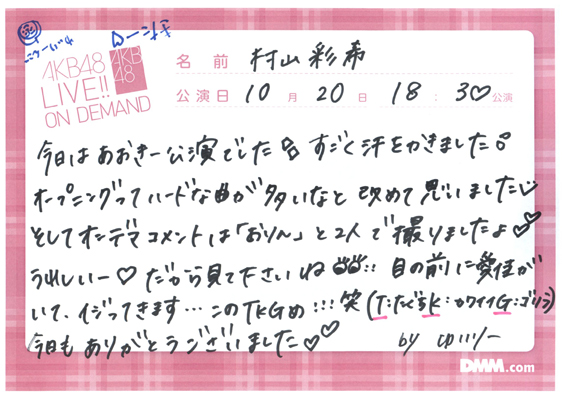 AKB48
LIVE!!
ON DEMAND
AKB
48
名前 村山彩希
公演日 10月20日 18:30公演
今日はあおきー公演でした すごく汗をかきました
オープニングってハードな曲が多いなと改めて思いました
そしてオンデマコメントは「おりん」と2人で撮りましたよ♡
うれしいー♡だから見て下さいね!! 目の前に愛佳が
いて、イジってきます…このTKGめ!!!笑(T:たぐちK:カワイイG:ゴリラ)
今日もありがとうございました♡♡ by ゆいりー
DMM.com